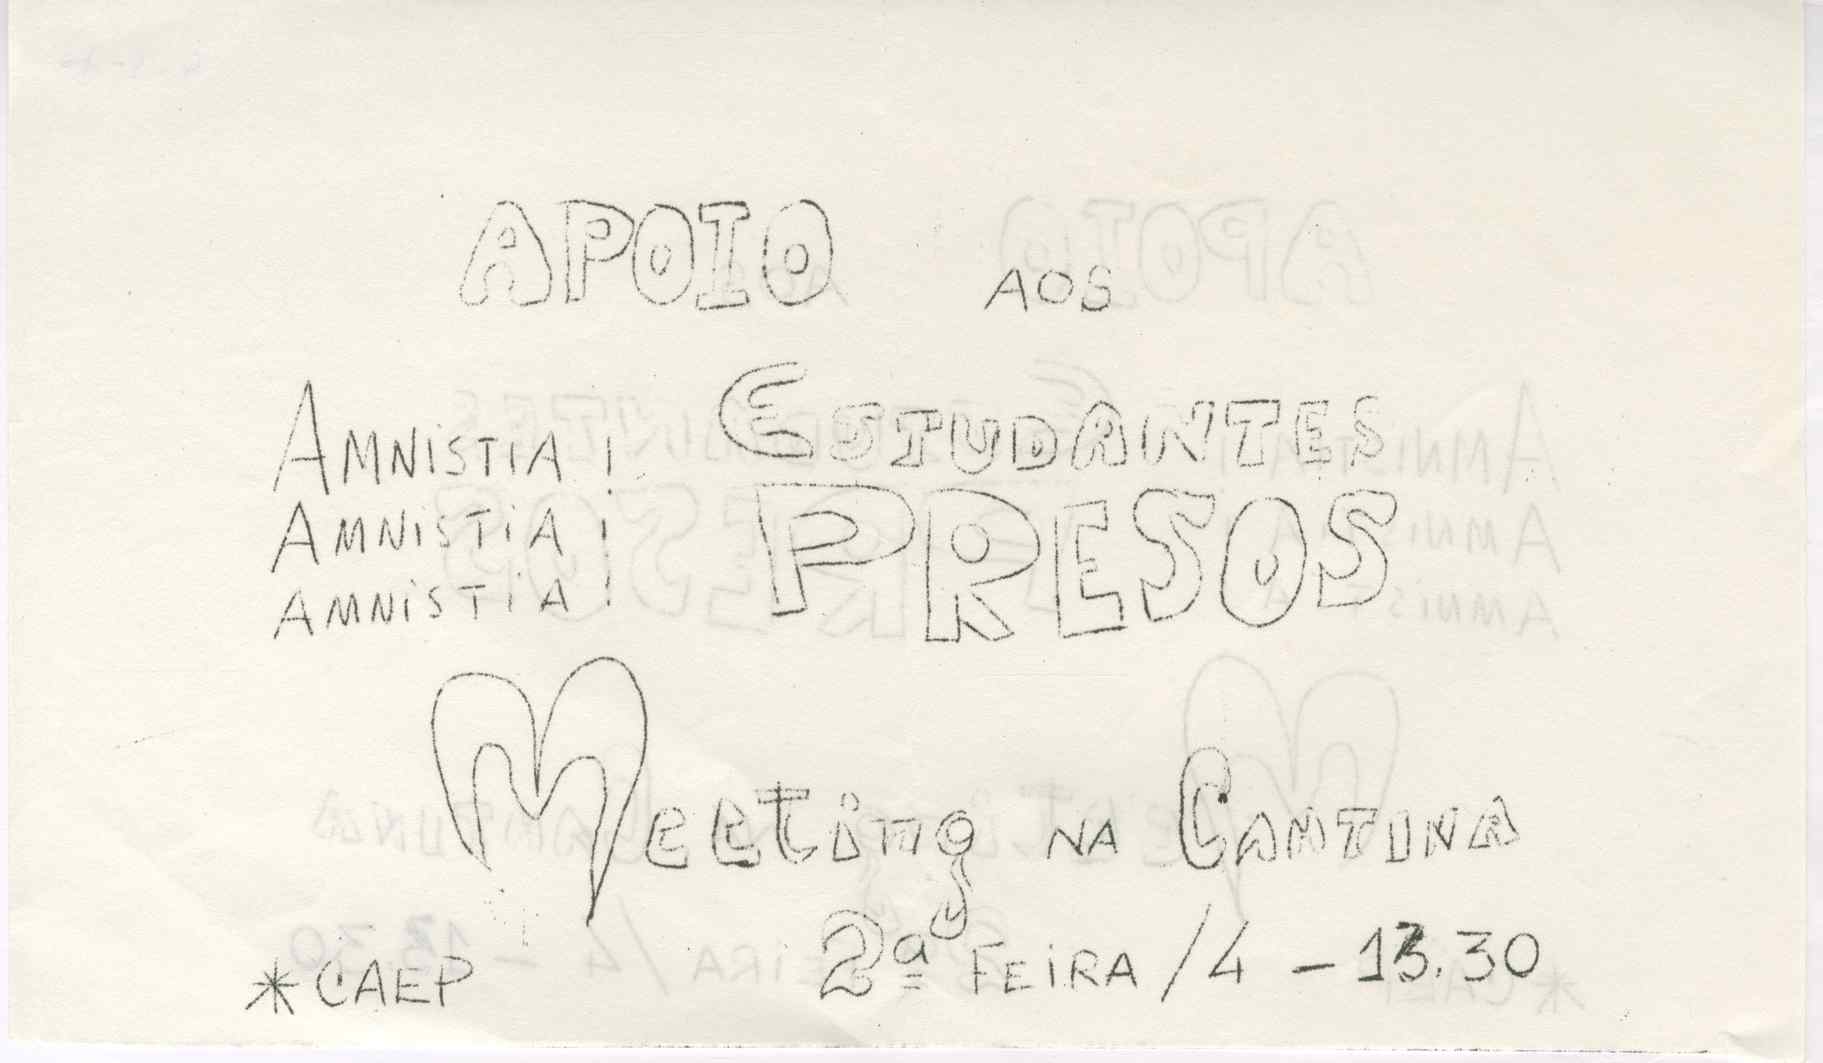 APOIO AOS
ESTUDANTES
PRESOS
AMNiSTiA!
AMNiSTiA!
AMNiSTiA!
Meeting NA CANTINA
2ª FEiRA/4 - 13.30
*CAEP